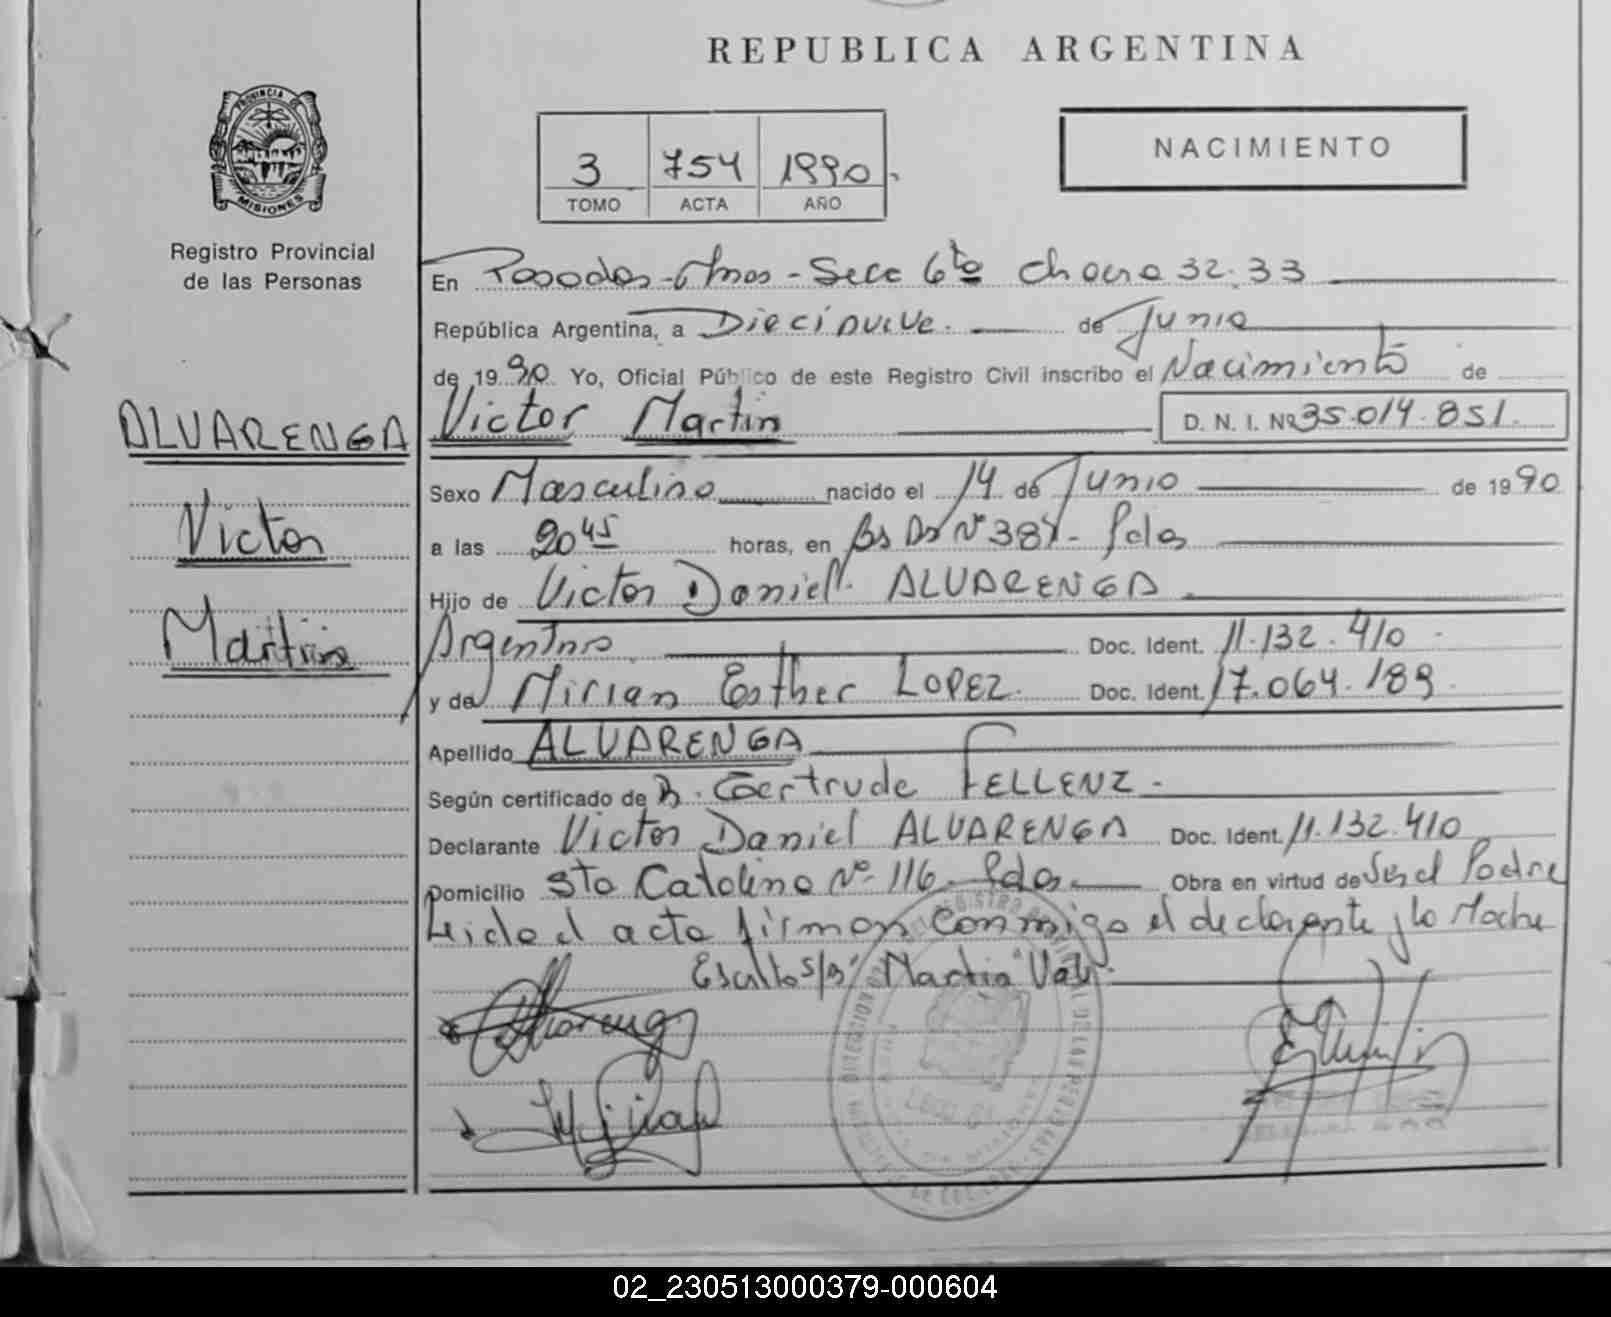 REPUBLICA ARGENTINA
PROVINCIA DE
MISIONES
Registro Provincial
de las Personas
3 754 1990
TOMO ACTA AÑO
NACIMIENTO
En Posadas - Mnes - Secc 6ta Chacra 32-33
República Argentina, a Diecinueve de Junio
de 1990 Yo, Oficial Público de este Registro Civil inscribo el Nacimiento de
ALVARENGA
Victor
Martin
Victor Martin D. N. I. Nº 35.014.851.
Sexo Masculino nacido el 14 de Junio de 1990
a las 20 45 horas, en Bs As Nº 387 - Pdas
Hijo de Victor Daniel ALVARENGA
Argentino Doc. Ident. 11.132.410
y de Mirian Esther LOPEZ Doc. Ident. 17.064.189
Apellido ALVARENGA
Según certificado de Gertrude FELLENZ
Declarante Victor Daniel ALVARENGA Doc. Ident. 11.132.410
Domicilio Sta Catalina Nº 116 Pdas. Obra en virtud de Ser el Padre
Leida el acta firman conmigo el declarante y la Madre
"Martin" Vale
02_230513000379-000604